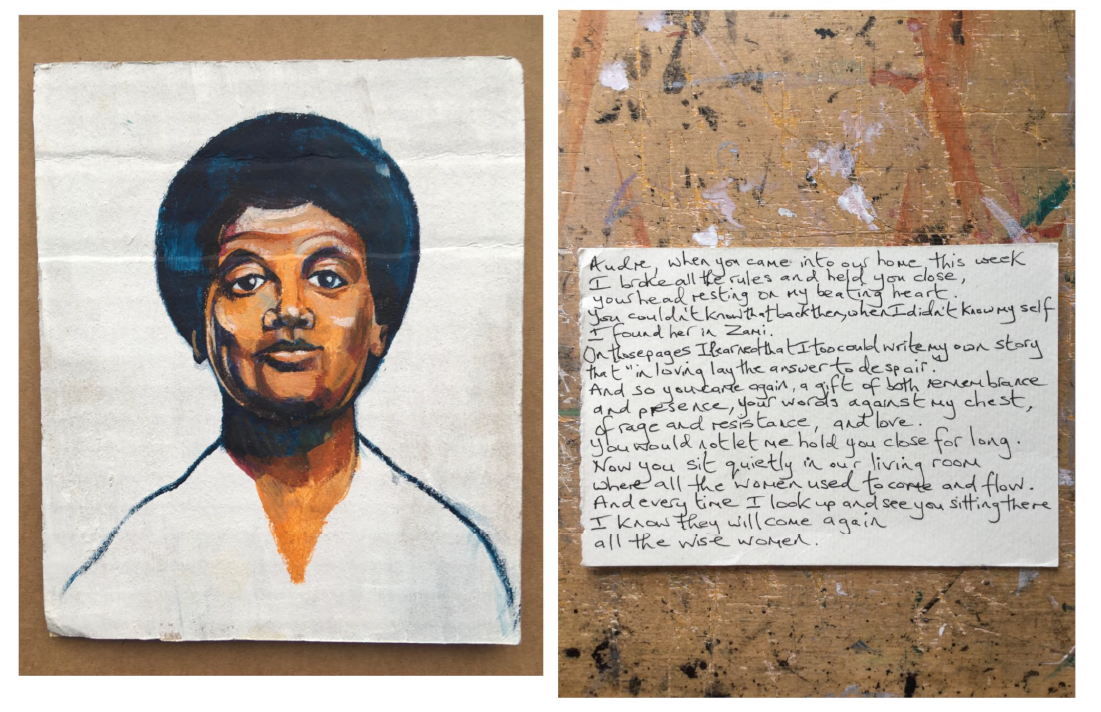 Audre, when you came into our home this week
I broke all the rules and held you close,
your head resting on my beating heart.
You couldn't know that back then, when I didn't know my self
I found her in Zami.
On those pages I learned that I too could write my own story
that "in loving lay the answer to despair".
And so you came again, a gift of both remembrance
and presence, your words against my chest,
of rage and resistance, and love.
You would not let me hold you close for long.
Now you sit quietly in our living room
where all the women used to come and flow.
And every time I look up and see you sitting there
I know they will come again
all the wise women.